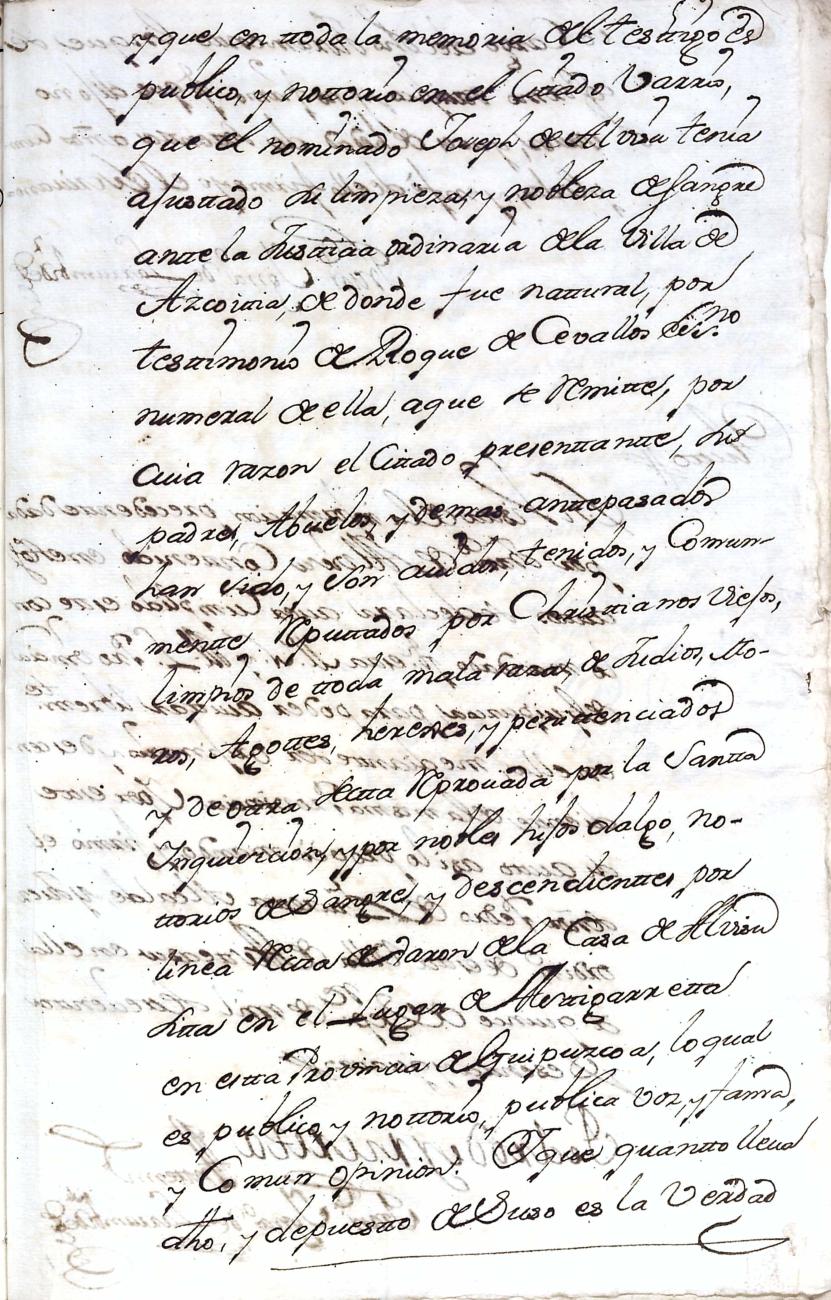 y que en ttoda la memoria del testtigo es
publico, y nottorio en el Cittado Varrio,
que el nominado Joseph de Alvisu tenia
ajusttado su limpieza, y nobleza de sangre
antte la Justticia ordinaria de la Villa de
Azcoittia, de donde fue nattural, por
testtimonio de Roque de Cevallos ess.no
numeral de ella, aque se remitte, por
cuia razon el Cittado presenttante, sus
padres, Abuelos, y demas anttepasados
han sido, y son avidos, tenidos, y Comun-
mentte Reputtados por Christtianos Viejos,
limpios de ttoda mala raza, de Judios, Mo-
ros, Agottes, herexes, y penittenciados
y de ottra Sectta Reprovada por la Santta
Inquisicion, y por nobles hijos dalgo, no-
ttorios de Sangre, y descendienttes por
linea Rectta de Varon de la Casa de Alvisu
sitta en el Lugar de Asttigarretta
en estta Provincia de Guipuzcoa, lo qual
es publico, y nottorio, publica voz, y fama,
y Comun opinion. Y que quantto lleva
dho, y depuestto de Suso es la Verdad